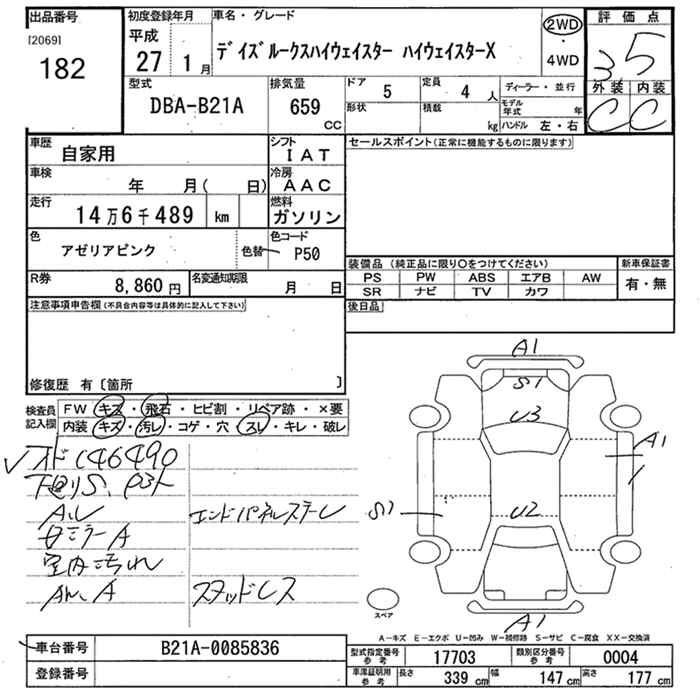 出品番号 初度登録年月 車名・グレード 2WD ・ 4WD 評価点
[2069] 182 平成 27 1月 デイズルークスハイウェイスター ハイウェイスターX 3.5
型式 DBA-B21A 排気量 659 CC ドア 5 定員 4 人 ディーラー・並行 外装 内装
形状 積載 kg モデル年式 年 C C
ハンドル 左・右
車歴 自家用 シフト IAT セールスポイント(正常に機能するものに限ります)
車検 年 月( 日) 冷房 AAC
走行 14万6千489 km 燃料 ガソリン
色 アゼリアピンク 色替 色コード P50
装備品 (純正品に限り○をつけてください) 新車保証書
PS PW ABS エアB AW 有・無
SR ナビ TV カワ
R券 8,860円 名変通知期限 月 日
後日品
注意事項申告欄(不具合内容等は具体的に記入して下さい)
修復歴 有〔箇所 〕
検査員記入欄 FW キズ・飛石・ヒビ割・リペア跡・×要
内装 キズ・汚レ・コゲ・穴・スレ・キレ・破レ
A1
S1
U3
A1
S1
U2
A1
146490
エンドパネルステーレ
A
室内汚れ
スタッドレス
スペア
A-キズ E-エクボ U-凹み W-補修跡 S-サビ C-腐食 XX-交換済
車台番号 B21A-0085836
登録番号
型式指定番号 参考 17703 類別区分番号 参考 0004
車庫証明用 参考 長さ 339 cm 幅 147 cm 高さ 177 cm